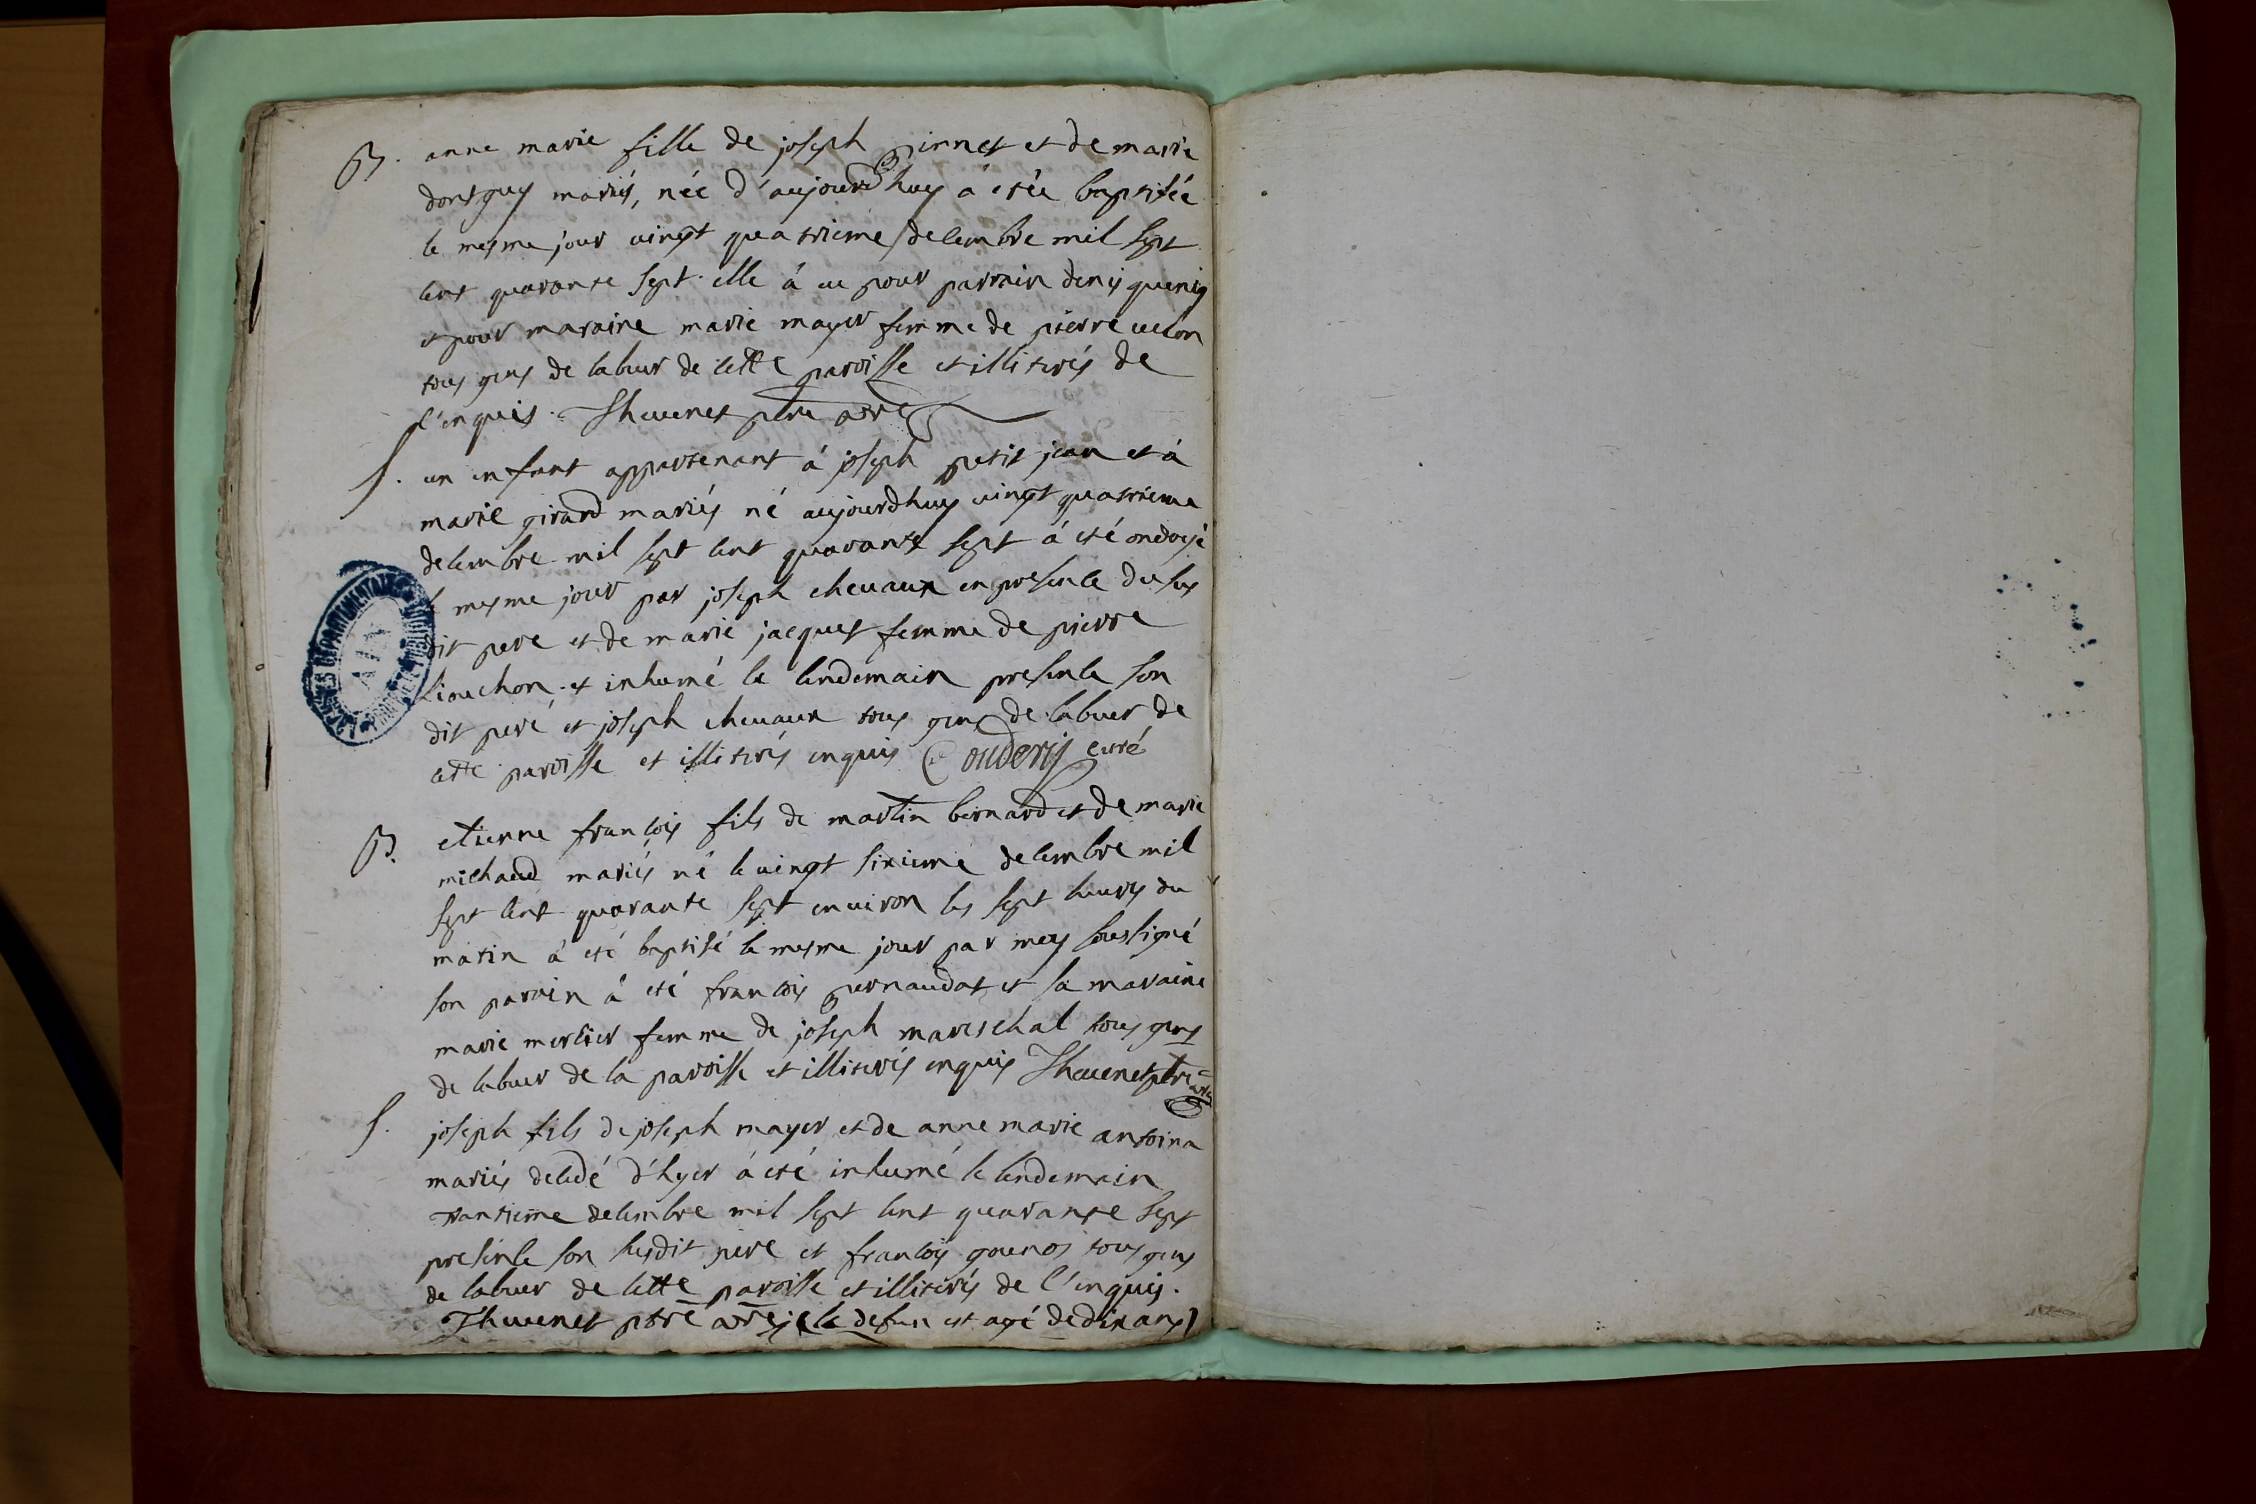 B. anne marie fille de joseph pinnet et de marie
dontguy mariés, née d'aujourdhuy á etéé baptisée
le mesme jour vingt quatrieme decembre mil sept
cent quarante sept. elle á eu pour parrain denis quenis
et pour maraine marie mayer femme de pierre velon
tous gens de labeur de cette paroisse et illiterés de
l'enquis. Thevenet ptre
S. un enfant appartenant á joseph petit jean et á
marie girard mariés né aujourdhuy vingt quatrieme
decembre mil sept cent quarante sept á eté ondoyé
mesme jour par joseph chevaux en presence du sus
dit pere et de marie jacques femme de pierre
et inhumé le lendemain presence son
dit peré et joseph chevaux tous gens de labeur de
cette paroisse et illiterés enquis Couderis curé
B. etienne francois fils de martin bernard et de marie
michaud mariés né le vingt sixieme decembre mil
sept cent quarante sept environ les sept heures du
matin á eté baptisé le mesme jour par moy soussigné
son parain á eté francois pernaudat et sa maraine
marie mercier femme de joseph mareschal tous gens
de labeur de la paroisse et illiterés enquis Thevenet ptre
S. joseph fils de joseph mayer et de anne marie antoina
mariés decedé d'hyer á eté inhumé le lendemain
trantieme decembre mil sept cent quarante sept
presence son susdit pere et francois gounos tous gens
de labeur de cette paroisse et illiterés de l'enquis.
Thevenet ptre (le defun est agé de dix ans)
ARCHIVES DEPARTEMENTALES
AIN